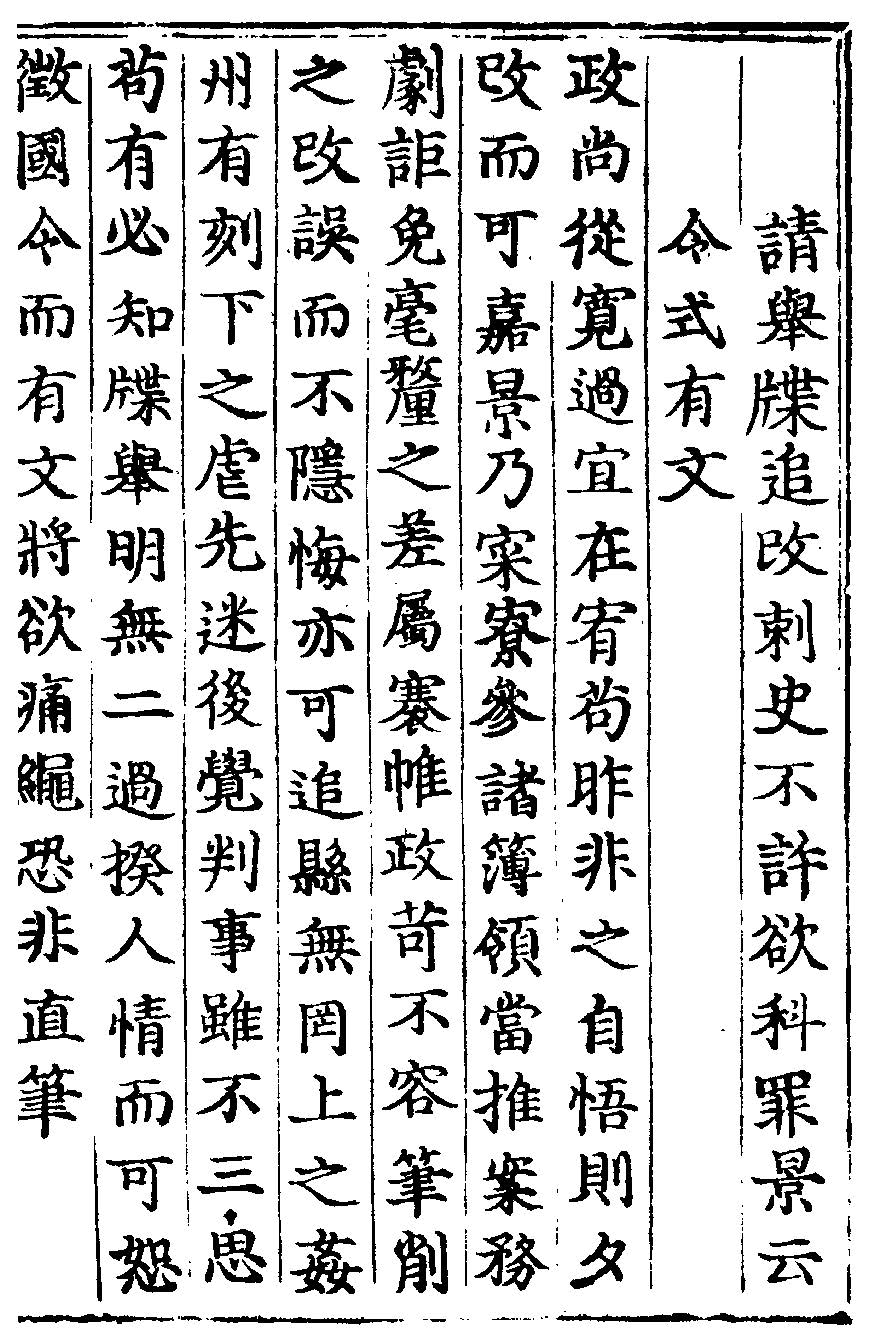 請舉牒追改刺史不許欲科罪景云
令式有文
政尚從寬過宜在宥苟昨非之自悟則夕
改而可嘉景乃寀寮參諸簿領當推案務
劇詎免毫釐之差屬褰帷政苛不容筆削
之改誤而不隱悔亦可追縣無罔上之姦
州有刻下之虐先迷後覺判事雖不三思
苟有必知牒舉明無二過揆人情而可恕
徵國令而有文將欲痛繩恐非直筆